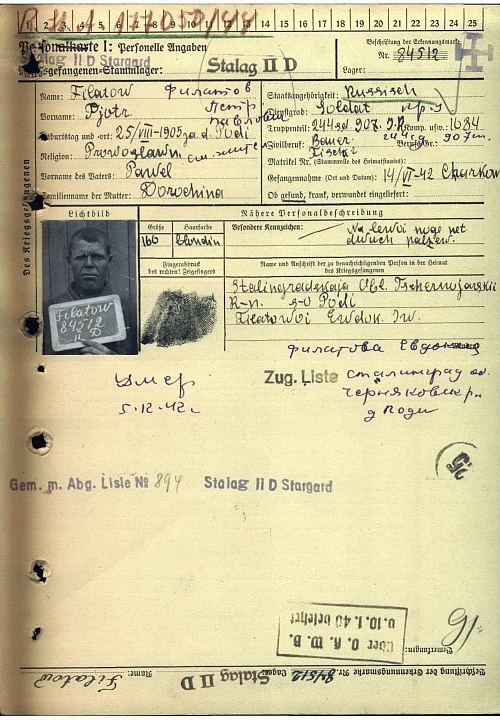 1 2 3 4 5 6 7 8 9 10 11 12 13 14 15 16 17 18 19 20 21 22 23 24 25
Personalkarte I: Personelle Angaben
Beschriftung der Erkennungsmarke
Stalag II D Stargard
Nr. 84512
Kriegsgefangenen-Stammlager: Stalag II D
Lager:
Des Kriegsgefangenen
Name: Filatow Филатов
Staatsangehörigkeit: Russisch
Vorname: Pjotr Петр Павлович
Dienstgrad: Soldat
Truppenteil: 244 sd. 907. I.R. Komp. usw.: 1684
Geburtstag und -ort: 25/VIII-1905 Podi
Zivilberuf: Bauer Berufs-Gr.:
Religion: Prawoslawn
Matrikel Nr. (Stammrolle des Heimatstaates):
Vorname des Vaters: Pawel
Gefangennahme (Ort und Datum): 14/VI-42 Charkow
Familienname der Mutter: Dorochina
Ob gesund, krank, verwundet eingeliefert:
Lichtbild
Nähere Personalbeschreibung
Größe Haarfarbe
Besondere Kennzeichen: Na lewoi noge net dwuch palzew.
166 blondin
Fingerabdruck
des rechten! Zeigefingers
Name und Anschrift der zu benachrichtigenden Person in der Heimat
des Kriegsgefangenen
Filatow
84512
II D
Stalingradskaja Obl. Tschernojarskii
R-n. s-o Podi
Filatowoi Ewdok. Iw.
Филатова Евдокия
Умер
5.12.42г
Zug. Liste
Сталинград об.
д Поди
26
Gem. m. Abg. Liste № 894 Stalag II D Stargard
Über O. K. W. B.
v. 10. 1. 40 belehrt
Bemerkungen:
Beschriftung der Erkennungsmarke Nr. 84512 Lager: Stalag II D Name: Filatow